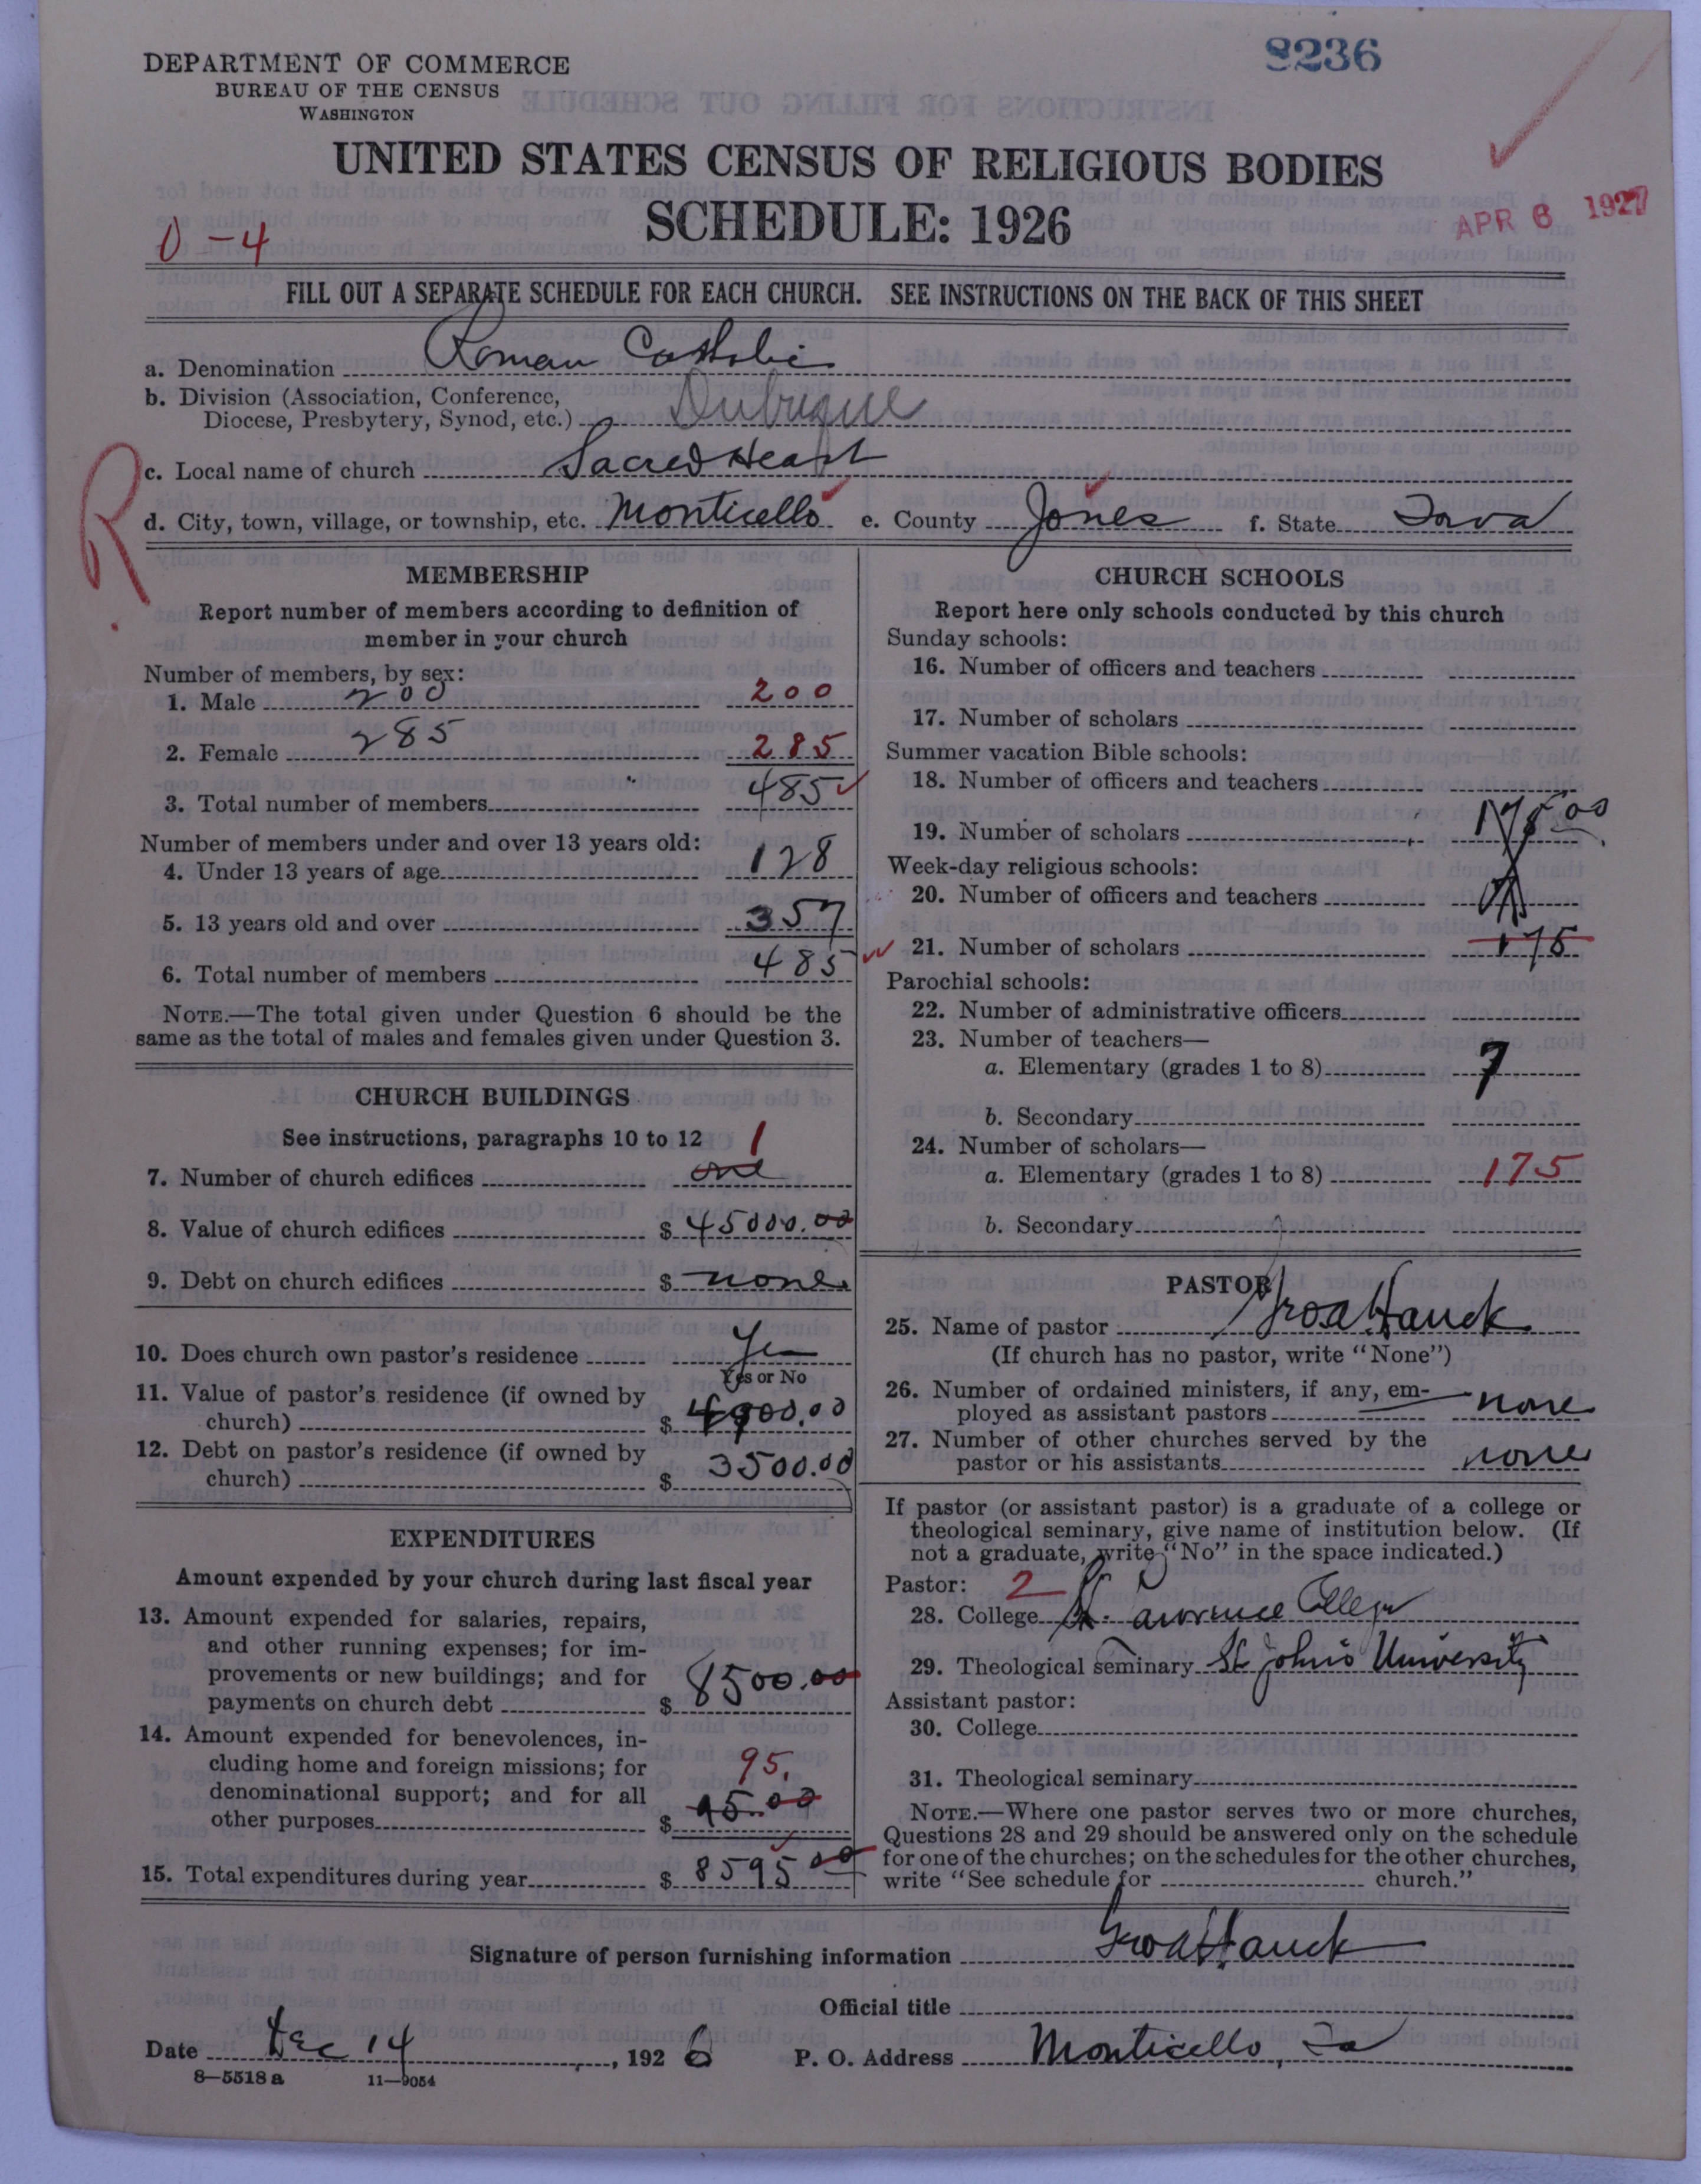 8236
DEPARTMENT OF COMMERCE
BUREAU OF THE CENSUS
WASHINGTON
UNITED STATES CENSUS OF RELIGIOUS BODIES
SCHEDULE: 1926
APR 6 1927
0-4
FILL OUT A SEPARATE SCHEDULE FOR EACH CHURCH. SEE INSTRUCTIONS ON THE BACK OF THIS SHEET
a. Denomination Roman Catholic
b. Division (Association, Conference,
Diocese, Presbytery, Synod, etc.) Dubuque
c. Local name of church Sacred Heart
R
d. City, town, village, or township, etc. Monticello e. County Jones f. State Iowa
MEMBERSHIP
Report number of members according to definition of
member in your church
Number of members, by sex:
1. Male 200 200
2. Female 285 285
3. Total number of members 485
Number of members under and over 13 years old:
4. Under 13 years of age 128
5. 13 years old and over 357
6. Total number of members 485
NOTE.—The total given under Question 6 should be the
same as the total of males and females given under Question 3.
CHURCH BUILDINGS
See instructions, paragraphs 10 to 12
1
7. Number of church edifices one
8. Value of church edifices $ 45000.00
9. Debt on church edifices $ none
10. Does church own pastor's residence Yes
Yes or No
11. Value of pastor's residence (if owned by
church) $
12. Debt on pastor's residence (if owned by
church) $ 3500.00
EXPENDITURES
Amount expended by your church during last fiscal year
13. Amount expended for salaries, repairs,
and other running expenses; for im-
provements or new buildings; and for
payments on church debt $ 8500.00
14. Amount expended for benevolences, in-
cluding home and foreign missions; for
denominational support; and for all
95.
other purposes $ 95.00
15. Total expenditures during year $ 8595 00
CHURCH SCHOOLS
Report here only schools conducted by this church
Sunday schools:
16. Number of officers and teachers
17. Number of scholars
Summer vacation Bible schools:
18. Number of officers and teachers
19. Number of scholars
Week-day religious schools:
20. Number of officers and teachers
21. Number of scholars 175
Parochial schools:
22. Number of administrative officers
23. Number of teachers—
a. Elementary (grades 1 to 8) 7
b. Secondary
24. Number of scholars—
a. Elementary (grades 1 to 8) 175
b. Secondary
PASTOR
25. Name of pastor Hauck
(If church has no pastor, write "None")
26. Number of ordained ministers, if any, em-
ployed as assistant pastors none
27. Number of other churches served by the
pastor or his assistants none
If pastor (or assistant pastor) is a graduate of a college or
theological seminary, give name of institution below. (If
not a graduate, write "No" in the space indicated.)
Pastor: 2
28. College St. Lawrence College
29. Theological seminary St Johns University
Assistant pastor:
30. College
31. Theological seminary
NOTE.—Where one pastor serves two or more churches,
Questions 28 and 29 should be answered only on the schedule
for one of the churches; on the schedules for the other churches,
write "See schedule for church."
Signature of person furnishing information Hauck
Official title
Date Dec 14, 1926 P. O. Address Monticello, Ia
8—5518 a 11—9054